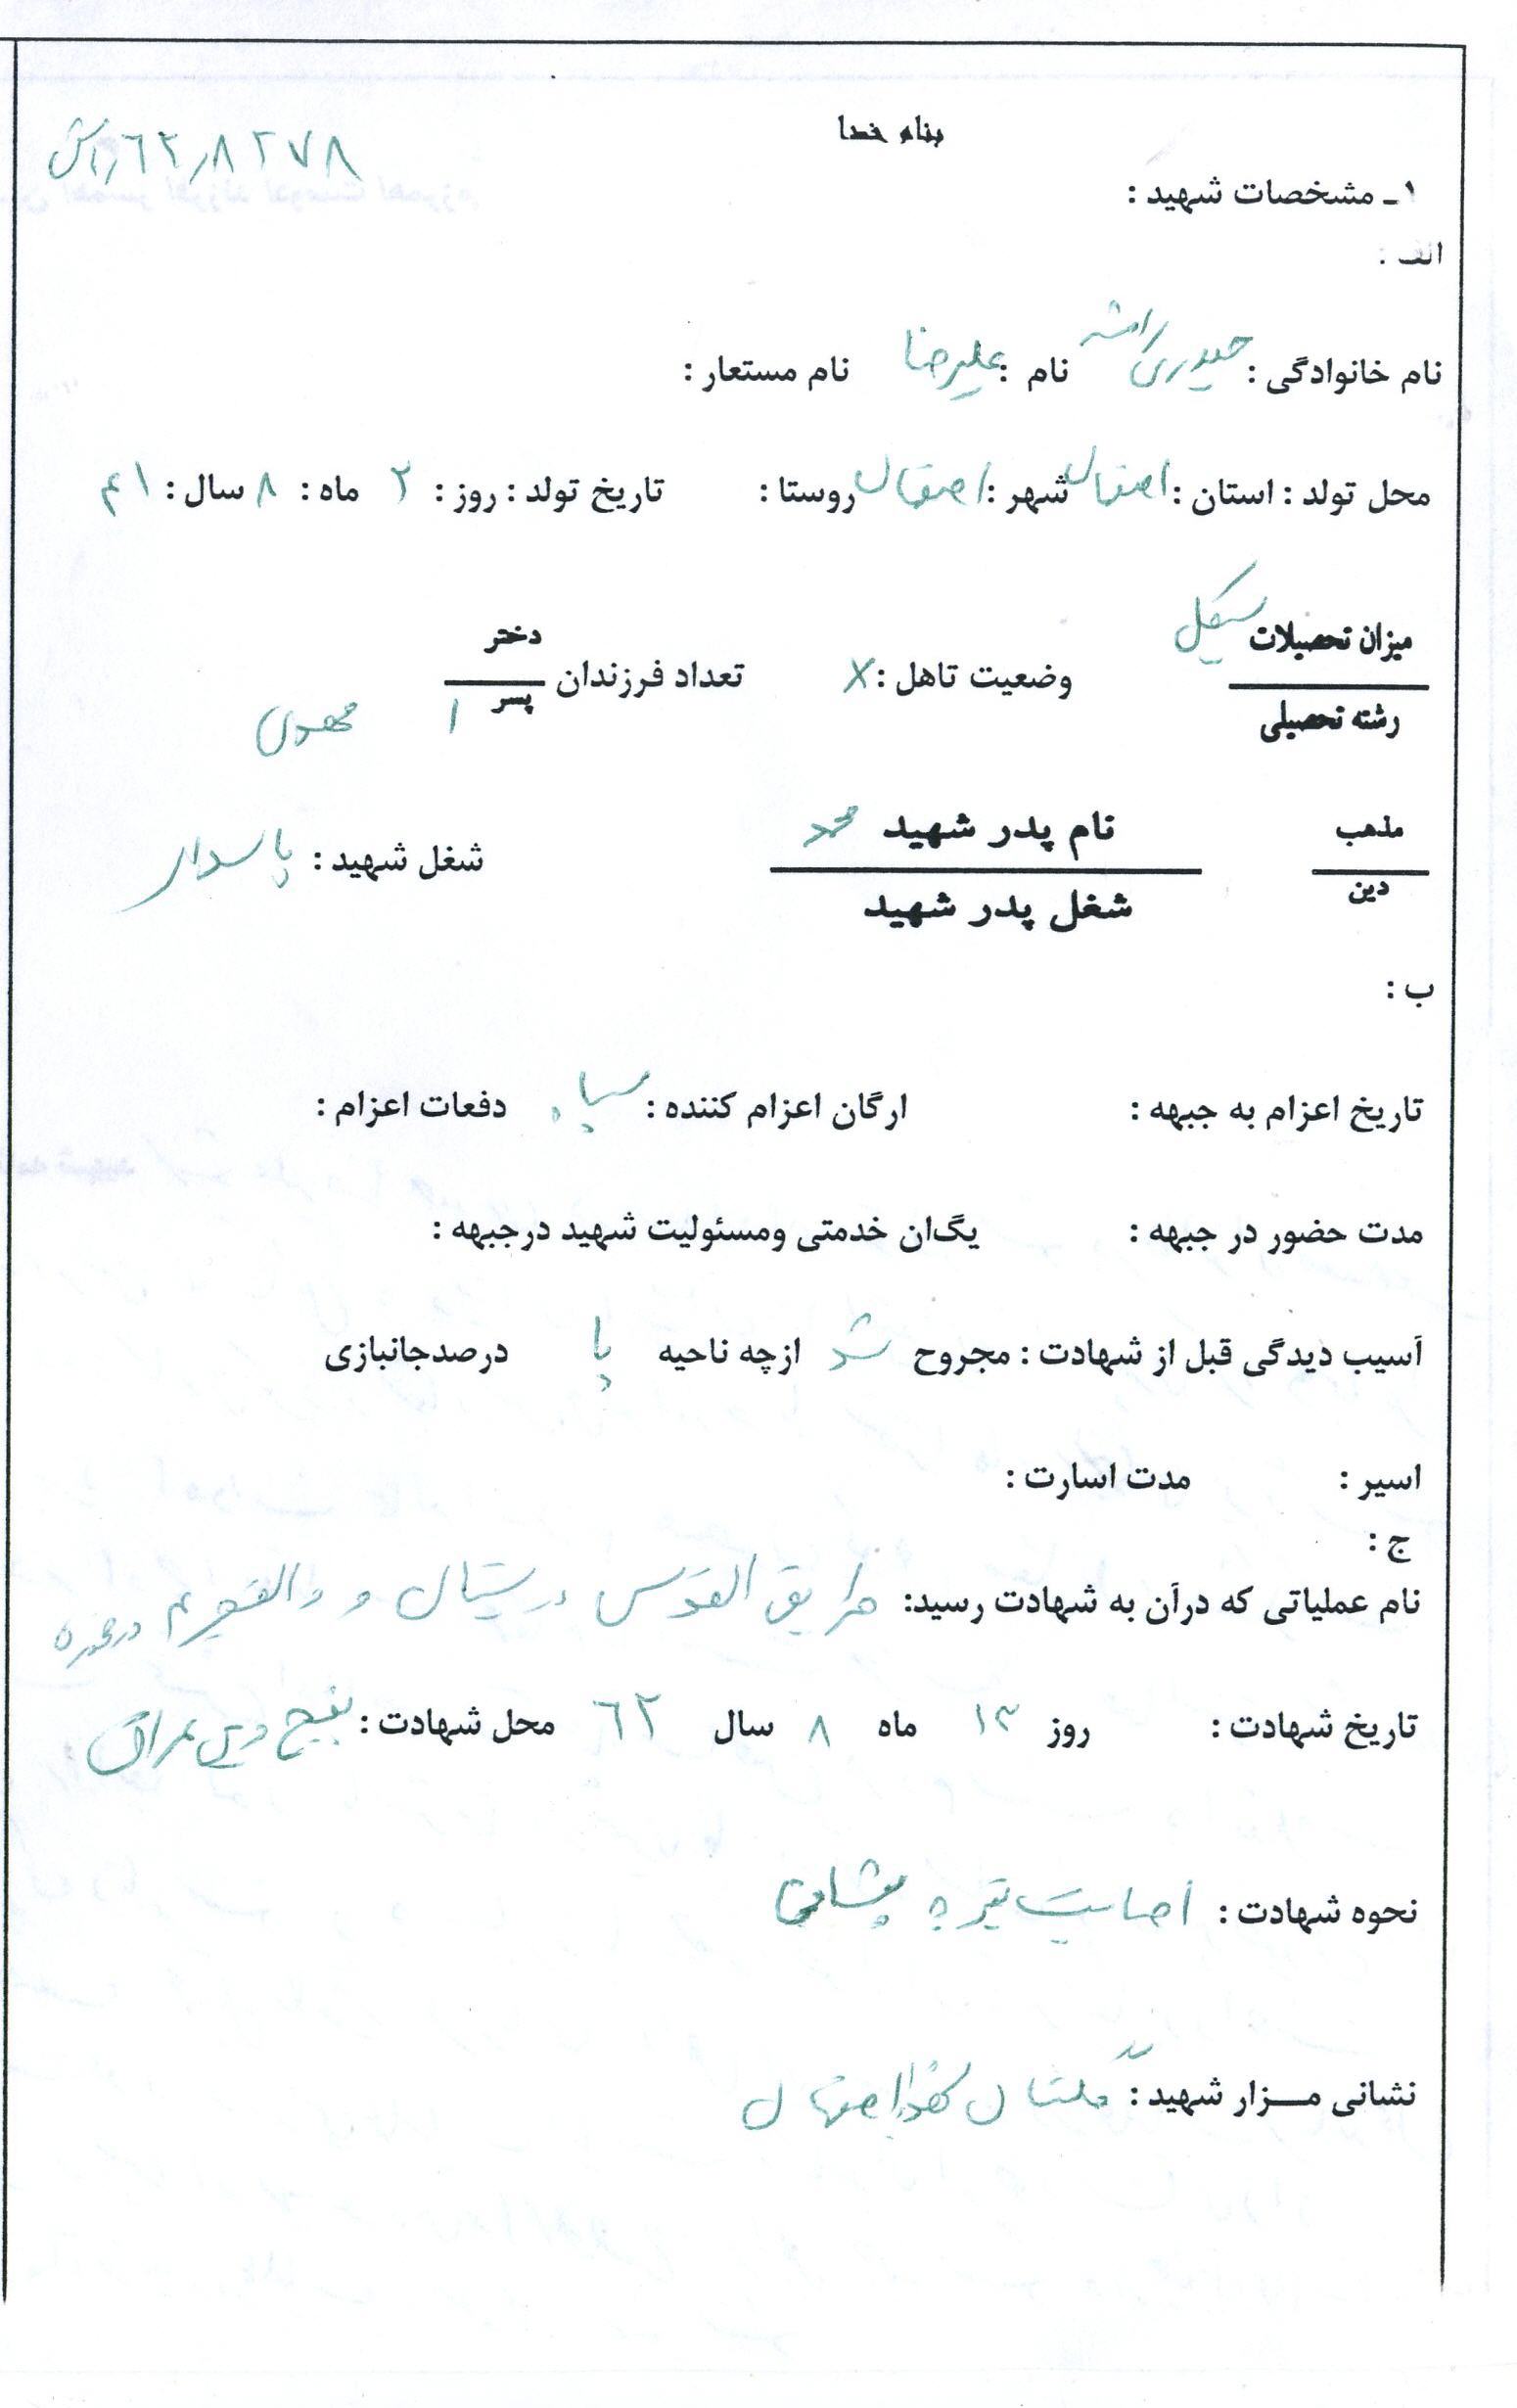 بنام خدا
۶۲۸۲۷۸
۱ـ مشخصات شهید :
الف :
نام خانوادگی : حیدری رامشه نام : علیرضا نام مستعار :
محل تولد : استان : اصفهان شهر : اصفهان روستا : تاریخ تولد : روز : ۲ ماه : ۸ سال : ۴۱
میزان تحصیلات سیکل
رشته تحصیلی
وضعیت تاهل : x تعداد فرزندان
دختر
پسر ۱ مهدی
مذهب
دین
نام پدر شهید محمد
شغل پدر شهید
شغل شهید : پاسدار
ب :
تاریخ اعزام به جبهه : ارگان اعزام کننده : سپاه دفعات اعزام :
مدت حضور در جبهه : یگان خدمتی ومسئولیت شهید درجبهه :
آسیب دیدگی قبل از شهادت : مجروح شد ازچه ناحیه پا درصدجانبازی
اسیر : مدت اسارت :
ج :
نام عملیاتی که درآن به شهادت رسید: طریق القدس در بستان و والفجر ۴ در
تاریخ شهادت : روز ۱۳ ماه ۸ سال ۶۲ محل شهادت : پنجوین عراق
نحوه شهادت : اصابت تیر به پیشانی
نشانی مـــزار شهید : گلستان شهدا اصفهان